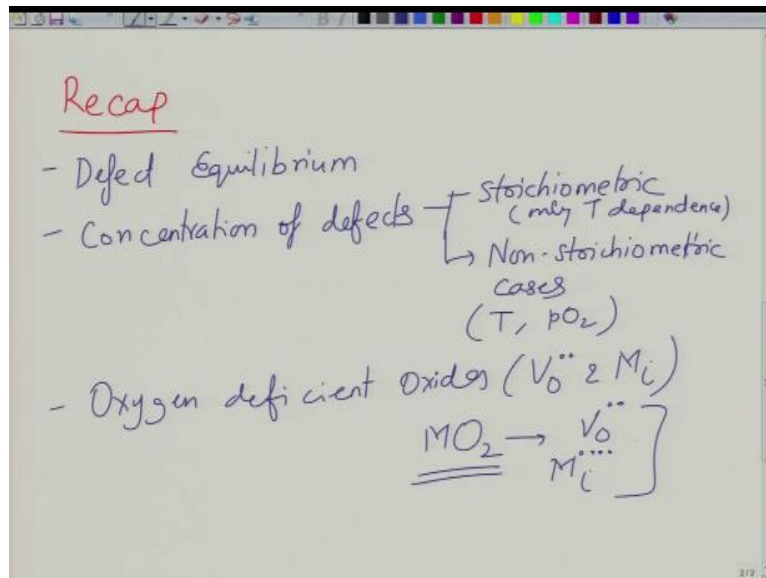 Recap
- Defect Equilibrium
- Concentration of defects
Stoichiometric
(only T dependence)
Non-stoichiometric
cases
(T, pO₂)
- Oxygen deficient Oxides (V_O^{••} & M_i)
MO₂ → V_O^{••}
M_i^{••••}
2/2